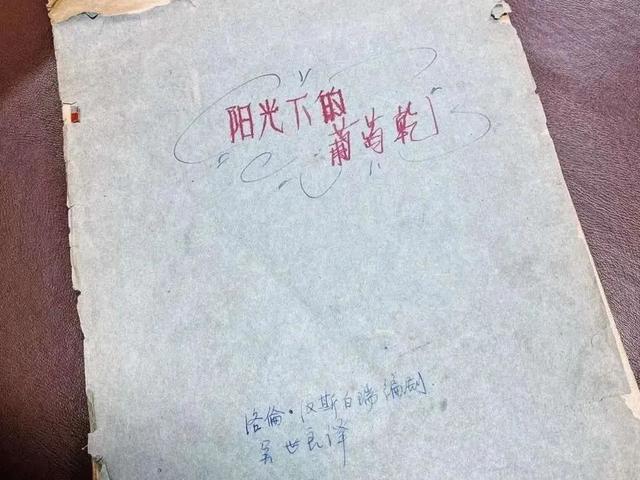 阳光下的
葡萄乾
洛倫·汉斯白瑞编剧
吴世良译